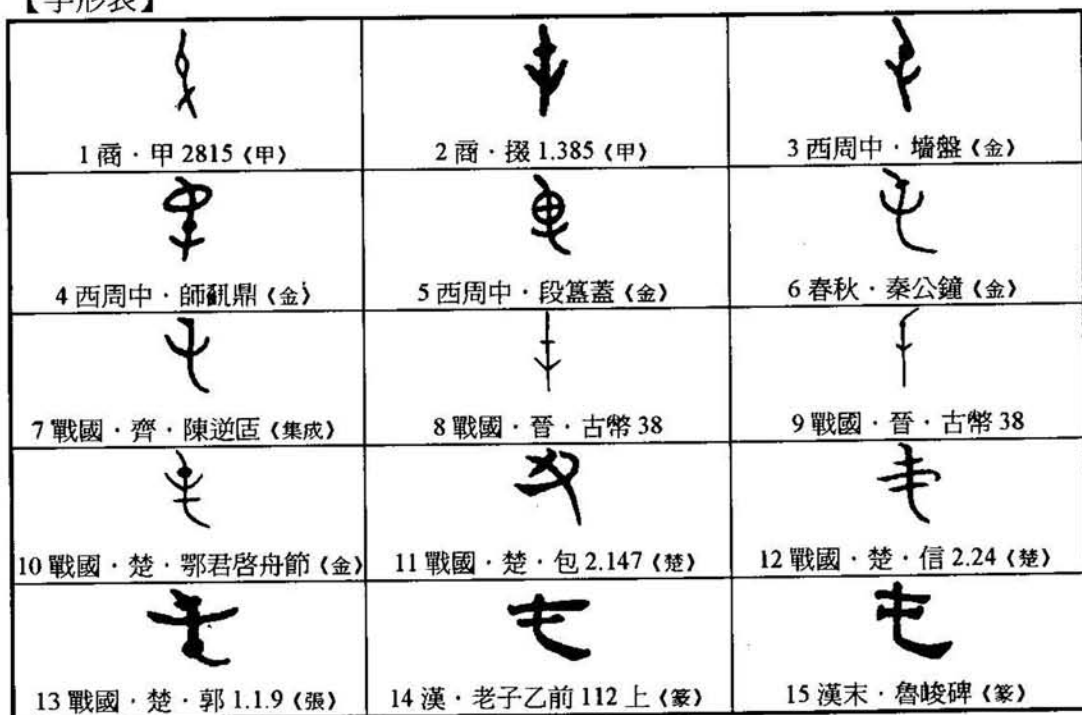 【字形表】
1 商・甲 2815《甲》
2 商・掇 1.385《甲》
3 西周中・墻盤《金》
4 西周中・師𩛥鼎《金》
5 西周中・段簋蓋《金》
6 春秋・秦公鐘《金》
7 戰國・齊・陳逆匜《集成》
8 戰國・晉・古幣 38
9 戰國・晉・古幣 38
10 戰國・楚・鄂君啓舟節《金》
11 戰國・楚・包 2.147《楚》
12 戰國・楚・信 2.24《楚》
13 戰國・楚・郭 1.1.9《張》
14 漢・老子乙前 112 上《篆》
15 漢末・魯峻碑《篆》